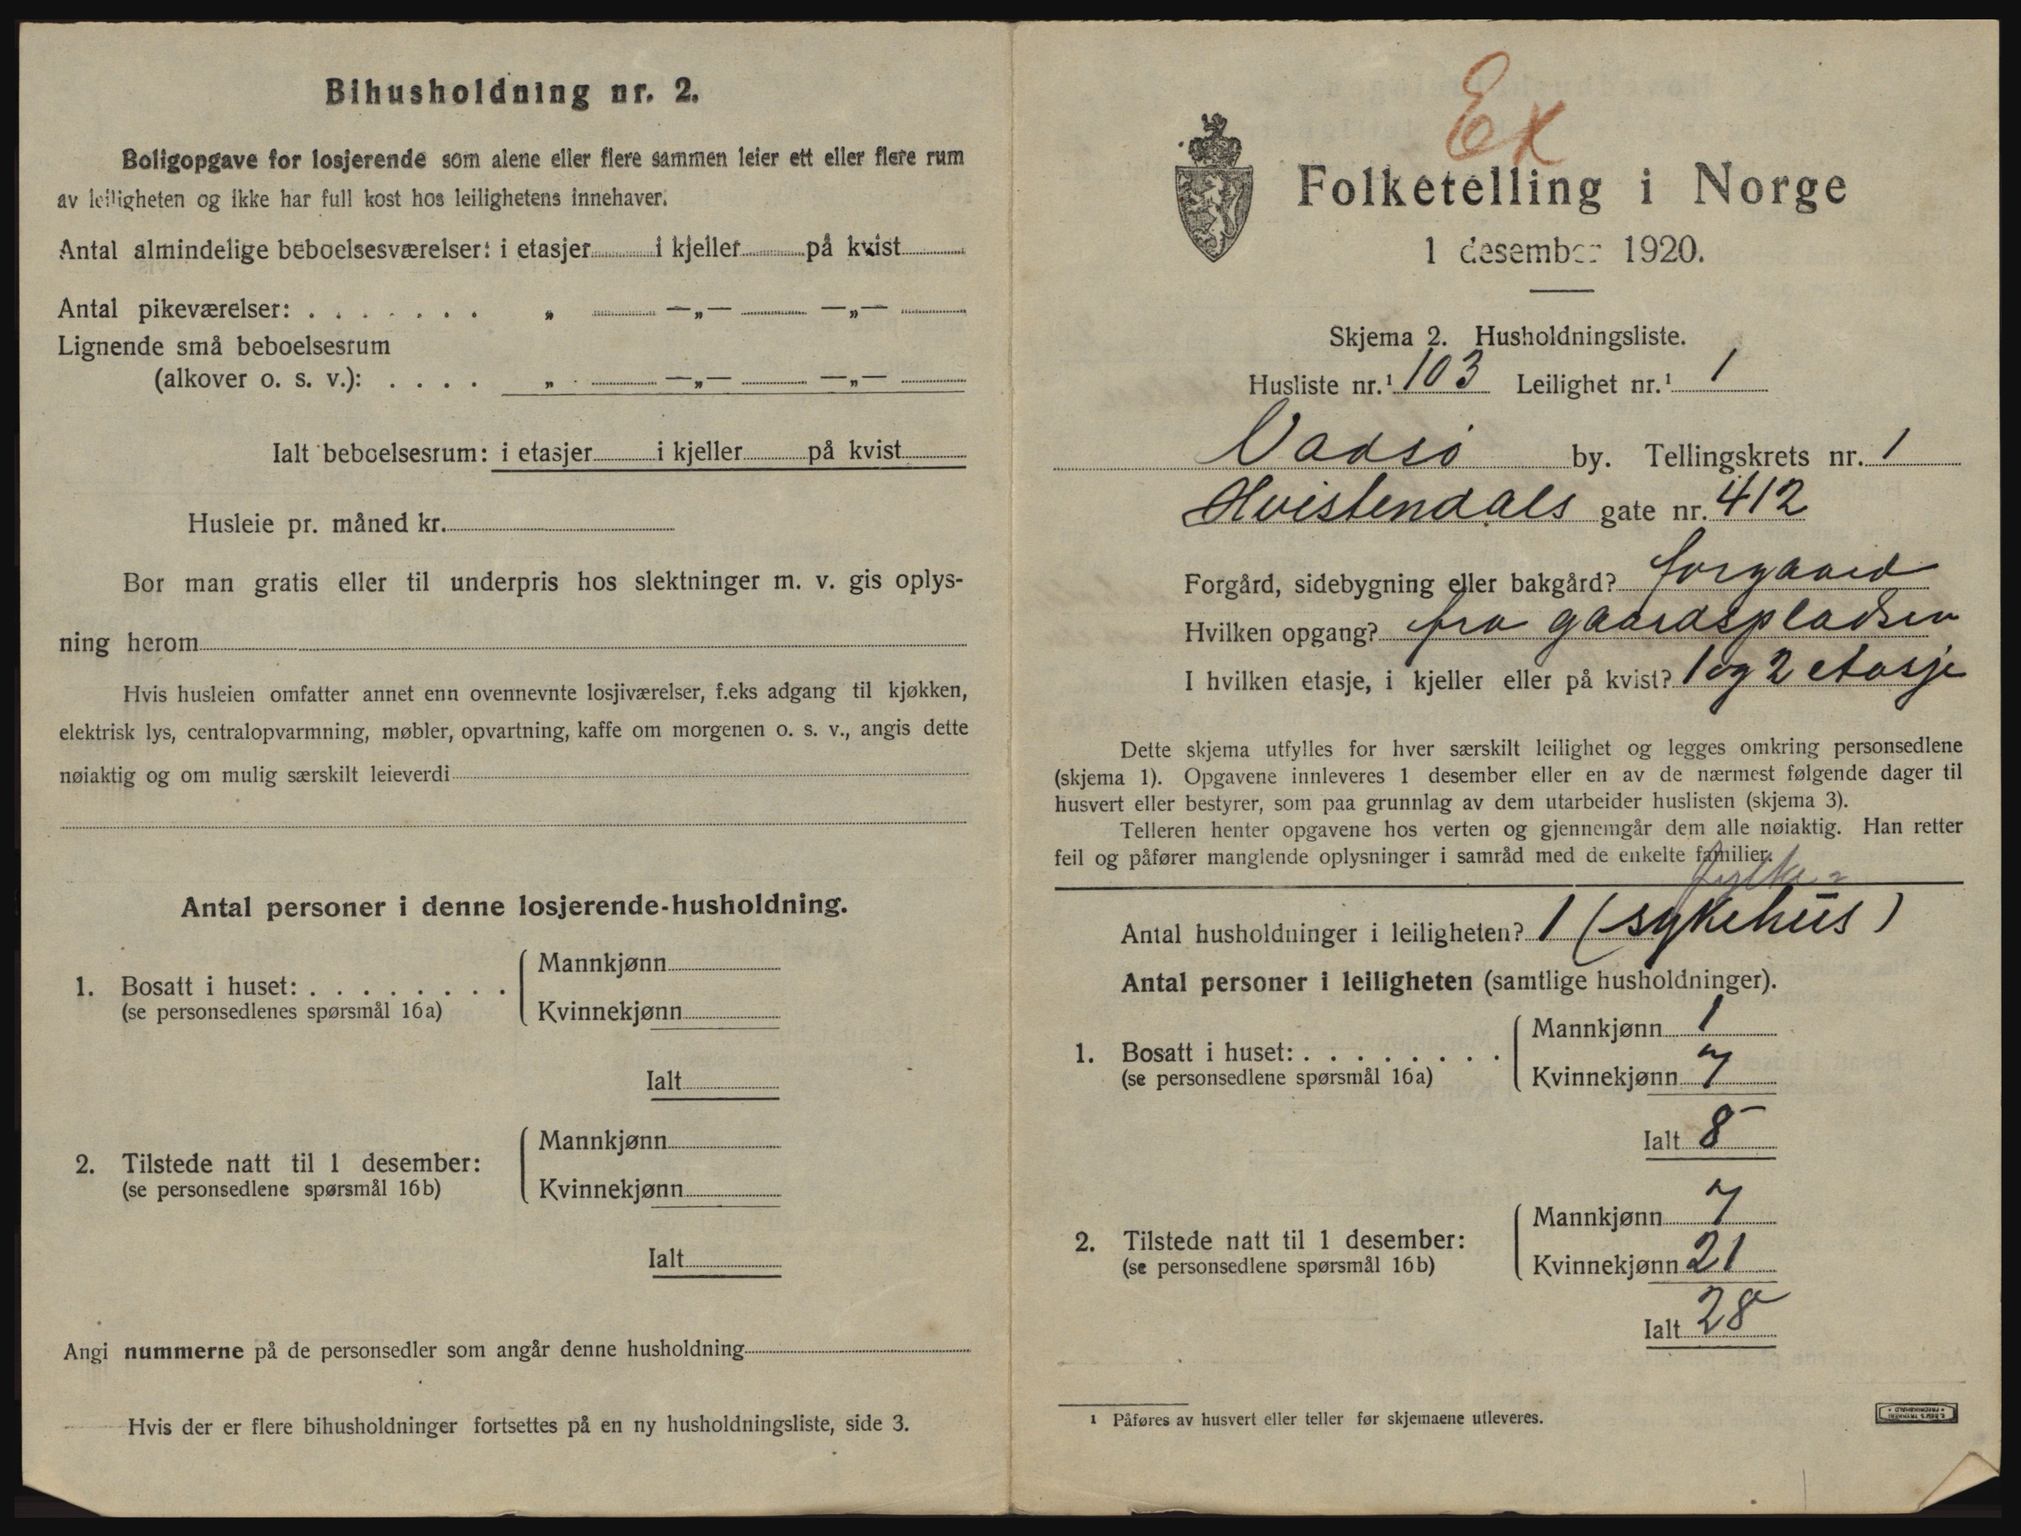 Bihusholdning nr. 2.
Boligopgave for losjerende som alene eller flere sammen leier ett eller flere rum
av leiligheten og ikke har full kost hos leilighetens innehaver.
Antal almindelige beboelsesværelser: i etasjer i kjeller på kvist
Antal pikeværelser: . . . . . . . „ —„— —„—
Lignende små beboelsesrum
(alkover o. s. v.): . . . . „ —„— —„—
Ialt beboelsesrum: i etasjer i kjeller på kvist
Husleie pr. måned kr.
Bor man gratis eller til underpris hos slektninger m. v. gis oplys-
ning herom
Hvis husleien omfatter annet enn ovennevnte losjiværelser, f.eks adgang til kjøkken,
elektrisk lys, centralopvarmning, møbler, opvartning, kaffe om morgenen o. s. v., angis dette
nøiaktig og om mulig særskilt leieverdi
Antal personer i denne losjerende-husholdning.
1. Bosatt i huset: . . . . . . . . Mannkjønn
(se personsedlenes spørsmål 16a) Kvinnekjønn
Ialt
2. Tilstede natt til 1 desember: Mannkjønn
(se personsedlene spørsmål 16b) Kvinnekjønn
Ialt
Angi nummerne på de personsedler som angår denne husholdning
Hvis der er flere bihusholdninger fortsettes på en ny husholdningsliste, side 3.
Ex
Folketelling i Norge
1 desember 1920.
Skjema 2. Husholdningsliste.
Husliste nr.¹ 103 Leilighet nr.¹ 1
Vadsö by. Tellingskrets nr. 1
Hvistendals gate nr. 412
Forgård, sidebygning eller bakgård? forgaard
Hvilken opgang? fra gaardspladsen
I hvilken etasje, i kjeller eller på kvist? 1 og 2 etasje
Dette skjema utfylles for hver særskilt leilighet og legges omkring personsedlene
(skjema 1). Opgavene innleveres 1 desember eller en av de nærmest følgende dager til
husvert eller bestyrer, som paa grunnlag av dem utarbeider huslisten (skjema 3).
Telleren henter opgavene hos verten og gjennemgår dem alle nøiaktig. Han retter
feil og påfører manglende oplysninger i samråd med de enkelte familier.
fylke-
Antal husholdninger i leiligheten? 1 (sykehus)
Antal personer i leiligheten (samtlige husholdninger).
1. Bosatt i huset: . . . . . . . . Mannkjønn 1
(se personsedlene spørsmål 16a) Kvinnekjønn 7
Ialt 8
2. Tilstede natt til 1 desember: Mannkjønn 7
(se personsedlene spørsmål 16b) Kvinnekjønn 21
Ialt 28
¹ Påføres av husvert eller teller før skjemaene utleveres.